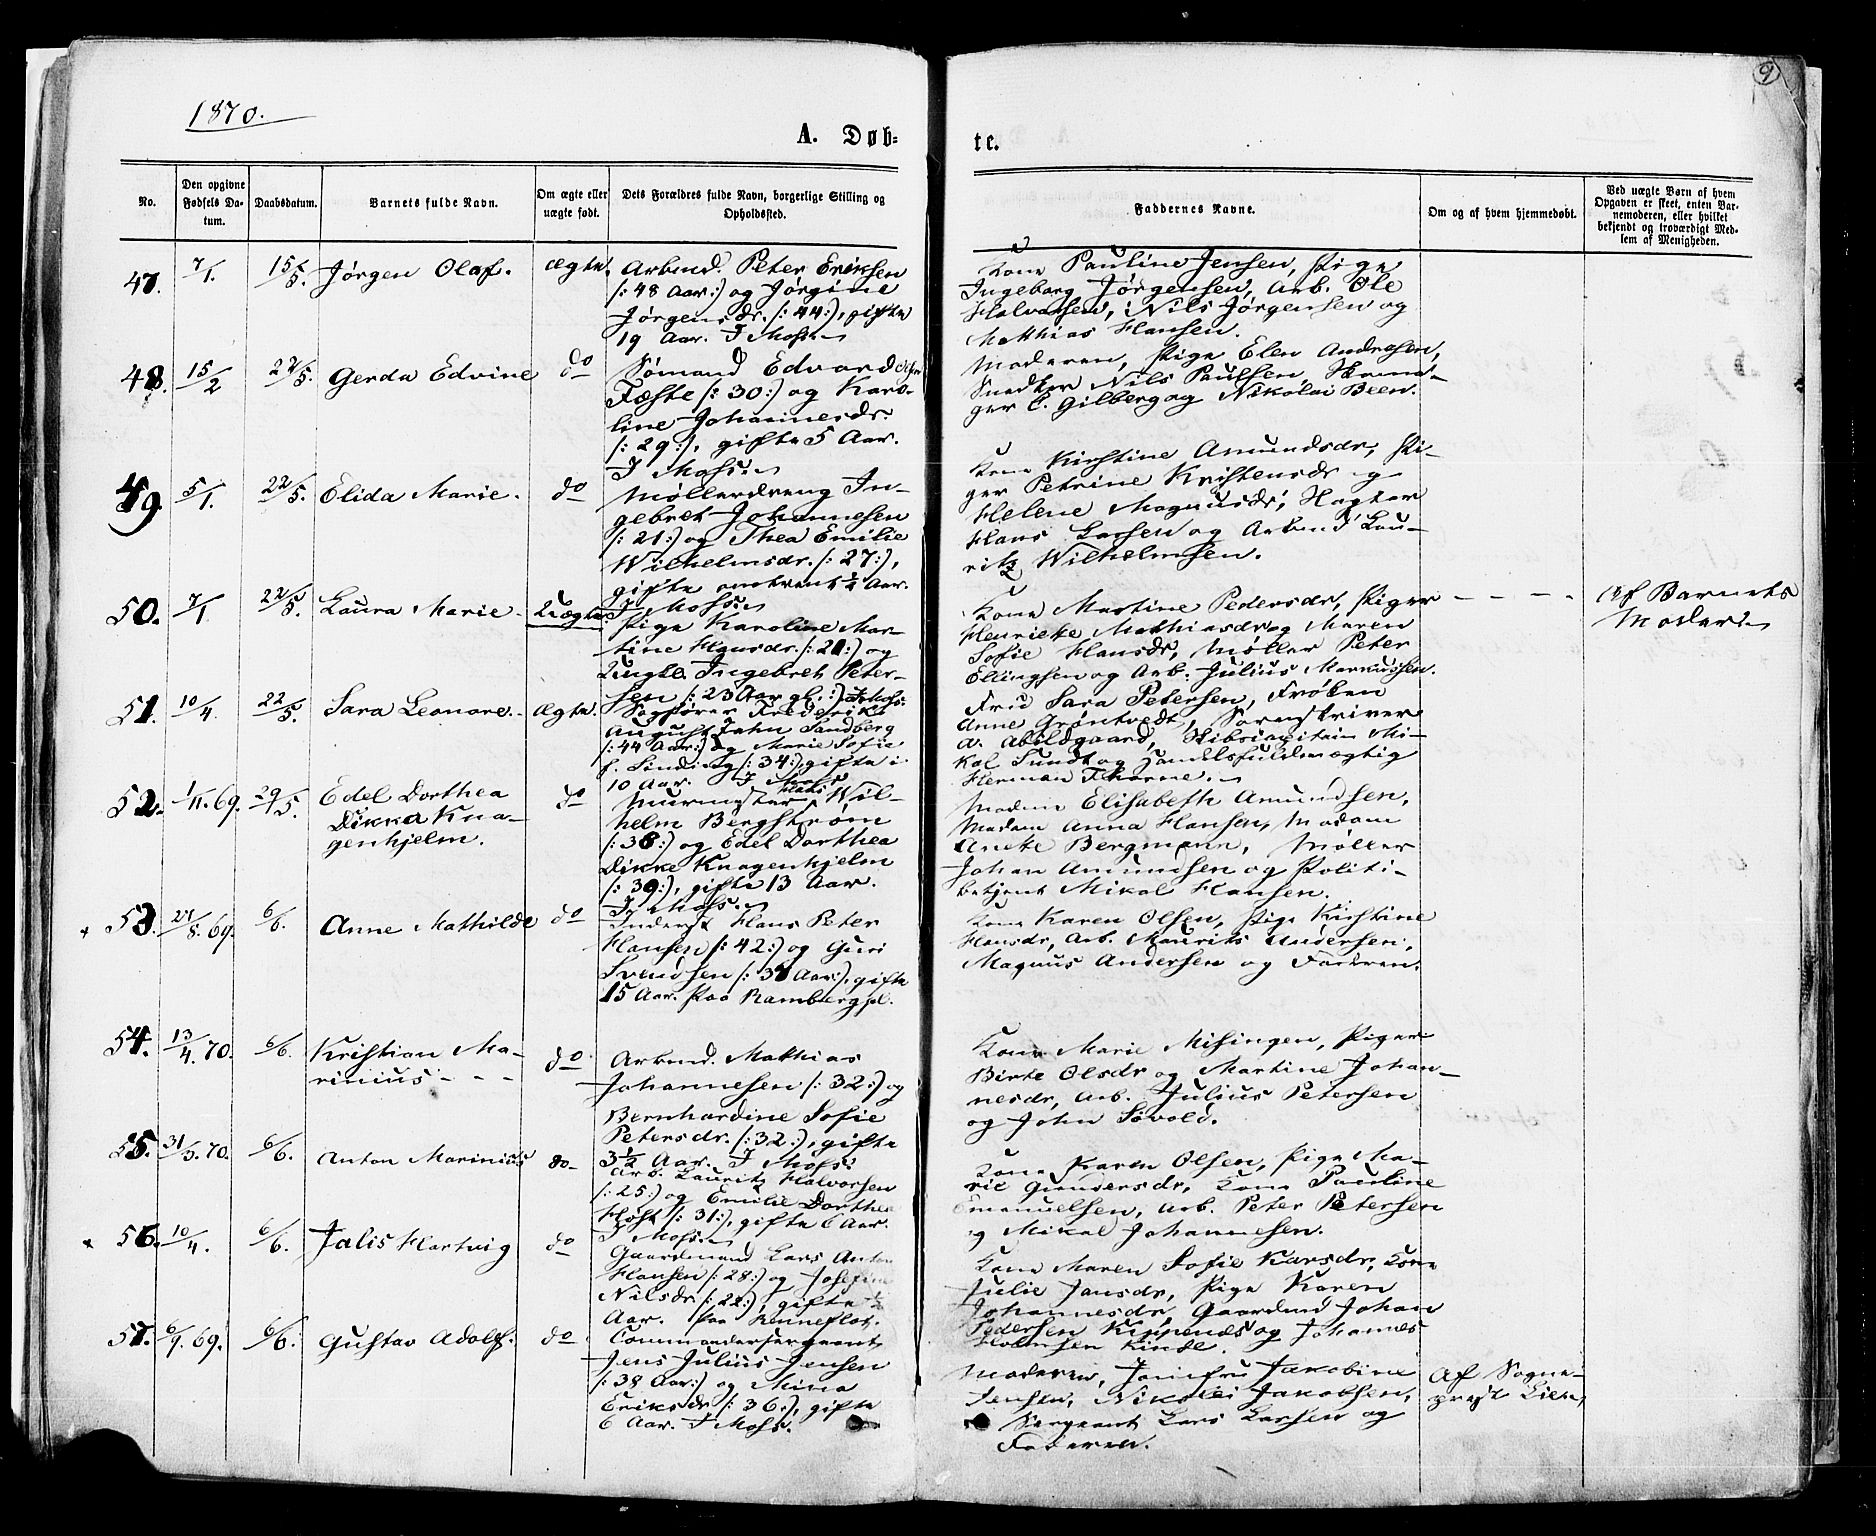 1870.
9
A. Døb=
te.
No.
Den opgivne
Fødsels Da-
tum.
Daabsdatum.
Barnets fulde Navn.
Om ægte eller
uægte født.
Dets Forældres fulde Navn, borgerlige Stilling og
Opholdssted.
Faddernes Navne.
Om og af hvem hjemmedøbt.
Ved uægte Børn af hvem
Opgaven er skeet, enten Bar-
nemoderen, eller hvilket
bekjendt og troværdigt Med-
lem af Menigheden.
47. 7/1. 15/5. Jørgen Olaf. ægte.
Arbmd. Peter Eriksen
/: 48 Aar :/ og Jørgine
Jørgensdr. /: 44 :/, gifte
19 Aar. I Moss.
Kone Pauline Jensen, Pige
Ingeborg Jørgensen, Arb. Ole
Halvorsen, Nils Jørgensen og
Matthias Hansen.
48. 15/2 22/5. Gerda Edvine do
Sømand Edvard
Fæste /: 30 :/ og Karo-
line Johannesdr.
/: 29 :/, gifte 5 Aar.
I Moss.
Moderen, Pige Elen Andresen,
Snedker Nils Paulsen
ger C. Gilberg og Nikolai Been.
49. 5/1. 22/5. Elida Marie. do
Møllerdreng In-
gebret Johannesen
/: 21 :/ og Thea Emilie
Wilhelmsdr. /: 27 :/,
gifte omtrent 1/4 Aar.
I Moss.
Kone Kirstine Amundsdr, Pi-
ger Petrine Kristensdr og
Helene Magnusdr,
Hans Larsen og Arbmd Lau-
ritz Wilhelmsen.
50. 7/1 22/5. Laura Marie. Uægte
Pige Karoline Mar-
tine Hansdr. /: 21 :/ og
Ungk. Ingebret Peter-
sen /: 23 Aar gl. :/ I Moss.
Kone Martine Pedersdr, Piger
Henriette Mathiasdr og Maren
Sofie Hansdr, Møller Peter
Ellingsen og Arb. Julius Markussen.
- - - -
Af Barnets
Moder.
51. 10/4. 22/5. Sara Leonore. ægte.
Sagfører Frederik
August John Sandberg
/: 44 Aar :/ og Marie Sofie
f. Sinding /: 34 :/, gifte i
10 Aar. I Moss
Fru Sara Petersen, Frøken
Anne Grøntvedt, Sorenskriver
A. Abildgaard, Skibscapitain Mi-
kal Sundt og Handelsfuldmægtig
Herman Thorne.
52. 1/11. 69. 29/5. Edel Dorthea
Dikka Kna-
genhjelm. do
Murmester Mads Wil-
helm Bergstrøm
/: 38 :/ og Edel Dorthea
Dikke Knagenhjelm
/: 39 :/, gifte 13 Aar.
I Moss.
Madam Elisabeth Amundsen,
Madam Anna Hansen, Madam
Anette Bergmann, Møller
Johan Amundsen og Politi-
betjent Mikal Hansen.
+ 53. 27/8. 69. 6/6. Anne Mathilde do
Inderst Hans Peter
Hansen /: 42 :/ og Guri
Svendsen /: 38 Aar :/, gifte
15 Aar. Paa Rambergpl.
Kone Karen Olsen, Pige Kirstine
Hansdr, Arb. Maurits Andersen,
Magnus Andersen og Faderen.
54. 13/4. 70. 6/6. Kristian Ma-
rinius - - - do.
Arbmd. Mathias
Johannesen /: 32 :/ og
Bernhardine Sofie
Petersdr. /: 32 :/, gifte
3 1/2 Aar. I Moss.
Kone Marie Misingen, Piger
Birte Olsdr og Martine Johan-
nesdr, Arb. Julius Petersen
og John Sovold.
55. 31/3. 70. 6/6. Anton Marinius do-
Arb. Lauritz Halvorsen
/: 25 :/ og Emilie Dorthea
Høst /: 31 :/, gifte 6 Aar.
I Moss.
Kone Karen Olsen, Pige Ma-
rie Gundersdr, Kone Pauline
Emanuelsen, Arb. Peter Petersen
og Mikal Johannesen.
x 56. 10/4. 6/6. Jalis Hartvig do
Gaardmand Lars Anton
Hansen /: 28 :/ og Josefine
Nilsdr /: 22 :/, gifte 1/2
Aar. Paa Renneflot.
Kone Maren Sofie Larsdr, Kone
Julie Jansdr, Pige Karen
Johannesdr, Gaardmd Johan
Pedersen Kippenes og Johannes
Holmsen Kinde.
57. 6/9. 69. 6/6. Gustav Adolf. do
Commandersergeant
Jens Julius Jensen
/: 38 Aar :/ og Mina
Eriksdr /: 36 :/, gifte
6 Aar. I Moss.
Moderen, Jomfru Jakobine
Jensen, Nikolai Jakobsen,
Sergeant Lars Larsen og
Faderen.
Af Sogne-
prest Lien,